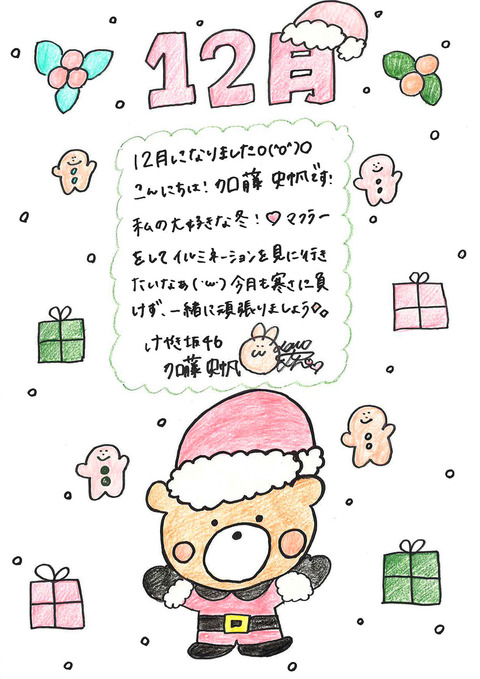 12月
12月になりました○(^o^)○
こんにちは！加藤 史帆です！
私の大好きな冬！♡マフラー
をしてイルミネーションを見に行き
たいなぁ(´ω`)今月も寒さに負
けず、一緒に頑張りましょう
けやき坂46
加藤 史帆